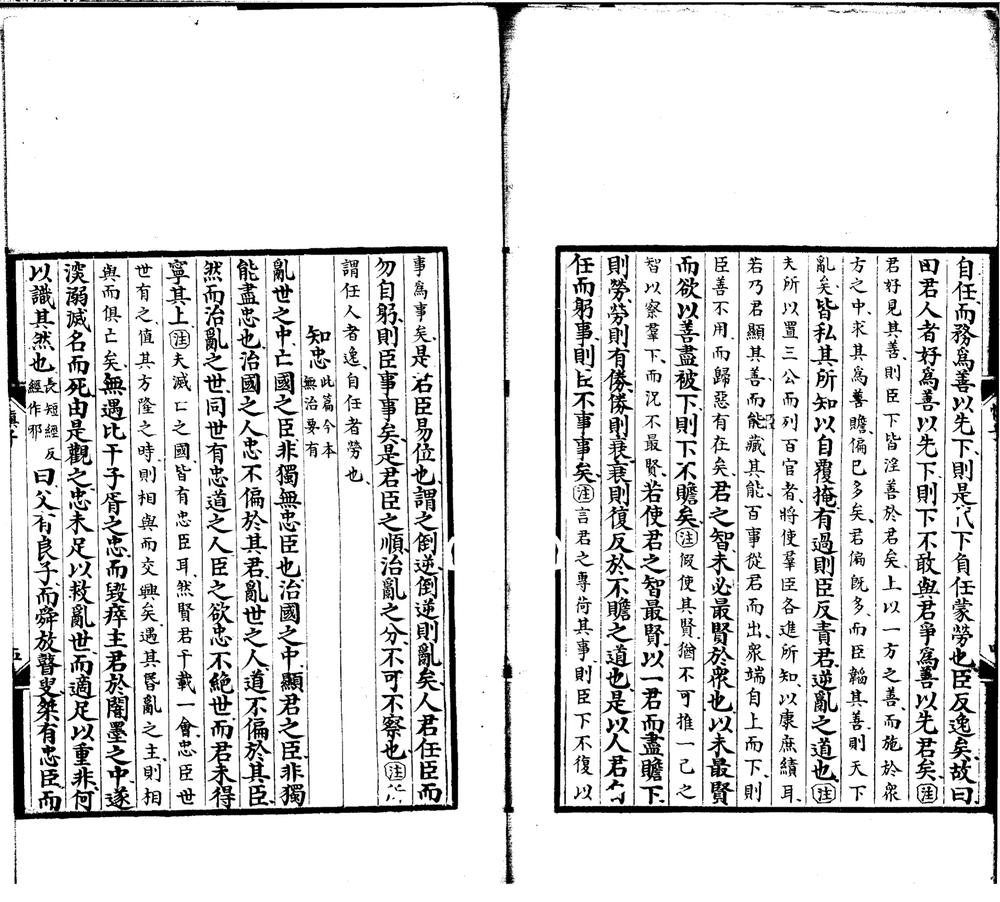 自任而務爲善以先下則是代下負任蒙勞也臣反逸矣故曰
君人者好爲善以先下則下不敢與君爭爲善以先君矣注
君好見其善則臣下皆淫善於君矣上以一方之善而施於衆
方之中求其爲善贍偏已多矣君偏既多而臣韜其善則天下
亂矣皆私其所知以自覆掩有過則臣反責君逆亂之道也注
夫所以置三公而列百官者將使羣臣各進所知以康庶績耳
若乃君顯其善而臣藏其能百事從君而出衆端自上而下則
臣善不用而歸惡有在矣君之智未必最賢於衆也以未最賢
而欲以善盡被下則下不贍矣注假使其賢猶不可推一己之
智以察羣下而況不最賢若使君之智最賢以一君而盡贍下
則勞勞則有倦倦則衰衰則復反於不贍之道也是以人君自
任而躬事則臣不事事矣注言君之專荷其事則臣下不復以
事爲事矣是君臣易位也謂之倒逆倒逆則亂矣人君任臣而
勿自躬則臣事事矣是君臣之順治亂之分不可不察也注所
謂任人者逸自任者勞也
知忠此篇今本無治要有
亂世之中亡國之臣非獨無忠臣也治國之中顯君之臣非獨
能盡忠也治國之人忠不偏於其君亂世之人道不偏於其臣
然而治亂之世同世有忠道之人臣之欲忠不絕世而君未得
寧其上注夫滅亡之國皆有忠臣耳然賢君千載一會忠臣世
世有之值其方隆之時則相與而交興矣遇其昬亂之主則相
與而俱亡矣無遇比干子胥之忠而毀瘁主君於闇墨之中遂
染溺滅名而死由是觀之忠未足以救亂世而適足以重非何
以識其然也長短經反經作邪曰父有良子而舜放瞽叟桀有忠臣而
慎子
五